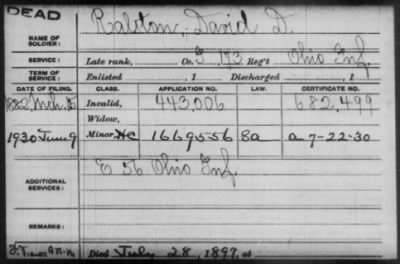 DEAD
NAME OF SOLDIER: Ralston, David D.
SERVICE: Late rank, Co. I, 173 Reg't Ohio Inf.
TERM OF SERVICE: Enlisted , 1 Discharged , 1
DATE OF FILING. CLASS. APPLICATION NO. LAW. CERTIFICATE NO.
1882 Mch. 15 Invalid, 443,006 682,499
Widow,
1930 June 9 Minor, HC 1669556 8a a 7-22-30
ADDITIONAL SERVICES: E 56 Ohio Inf.
REMARKS:
Died July 28, 1897, at